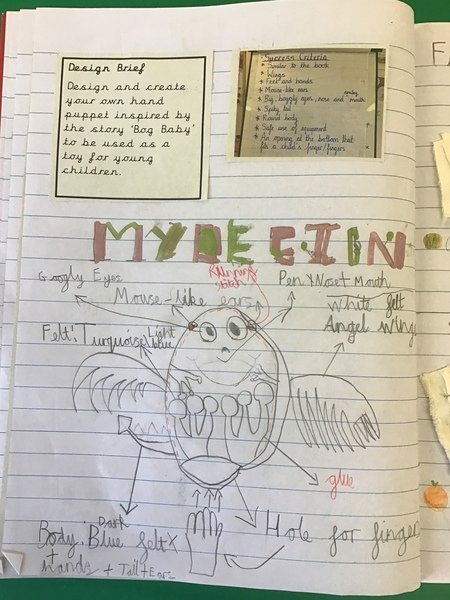 Design Brief
Design and create
your own hand
puppet inspired by
the story 'Bog Baby'
to be used as a
toy for young
children.
Success Criteria
* Similar to the book
* Wings
* Feet and hands
* Mouse-like ears
smiley
* Big, boggly eyes, nose and mouth
* Spiky tail
* Round body
* Safe use of equipment
* An opening at the bottom that
fits a child's finger/fingers
MY DEGIIN
Googly Eyes
Running
stitch
Pen x Nose + Mouth
Mouse-like ears
White felt
Angel Wings
Felt: Turquoise/Light
blue
glue
Body: Dark Blue felt x
+
hands + Tail + Ears
Hole for finger